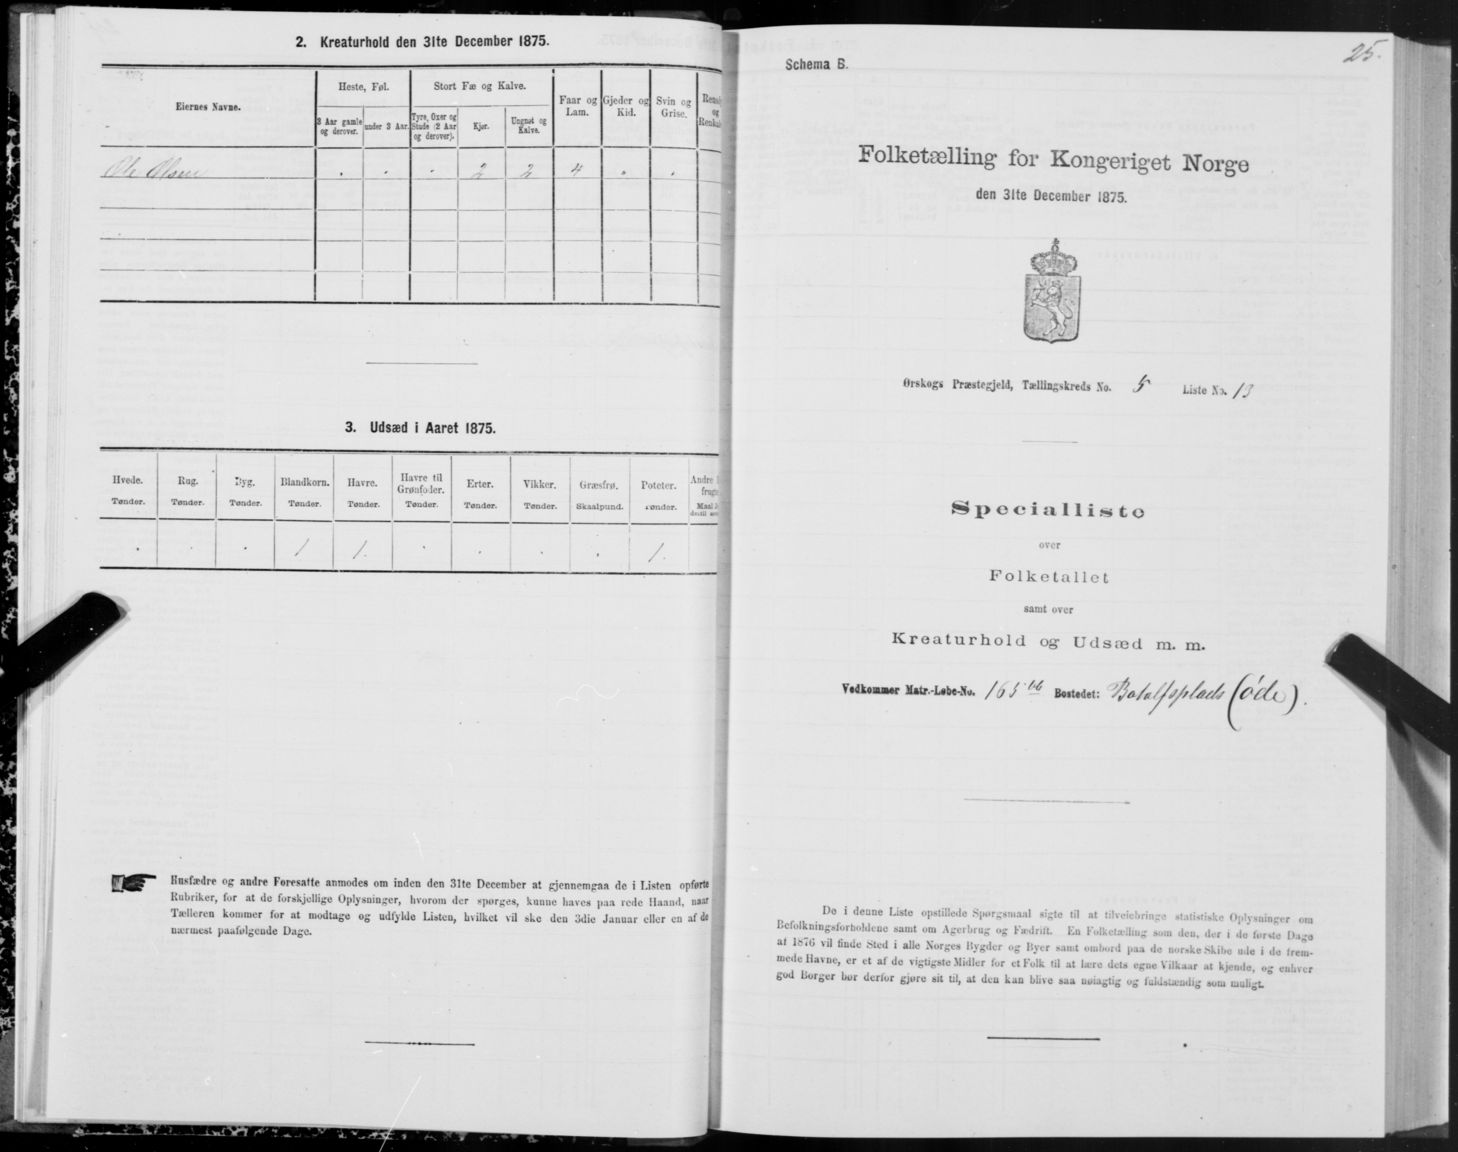 2. Kreaturhold den 31te December 1875.
Eiernes Navne.
Heste, Føl.
Stort Fæ og Kalve.
3 Aar gamle og derover.
under 3 Aar.
Tyre, Oxer og Stude (2 Aar og derover).
Kjør.
Ungnøt og Kalve.
Faar og Lam.
Gjeder og Kid.
Svin og Grise.
Ole Olsen . . . 2 2 4 . .
3. Udsæd i Aaret 1875.
Hvede. Rug. Byg. Blandkorn. Havre. Havre til Grønfoder. Erter. Vikker. Græsfrø. Poteter.
Tønder. Tønder. Tønder. Tønder. Tønder. Tønder. Tønder. Tønder. Skaalpund. Tønder.
. . . 1 1. . . . . 1.
Husfædre og andre Foresatte anmodes om inden den 31te December at gjennemgaa de i Listen opførte
Rubriker, for at de forskjellige Oplysninger, hvorom der spørges, kunne haves paa rede Haand, naar
Tælleren kommer for at modtage og udfylde Listen, hvilket vil ske den 3die Januar eller en af de
nærmest paafølgende Dage.
25.
Schema B.
Folketælling for Kongeriget Norge
den 31te December 1875.
Ørskogs Præstegjeld, Tællingskreds No. 5 Liste No. 13
Specialliste
over
Folketallet
samt over
Kreaturhold og Udsæd m. m.
Vedkommer Matr.-Løbe-No. 165 bb Bostedet: Botolfsplads (øde).
De i denne Liste opstillede Spørgsmaal sigte til at tilveiebringe statistiske Oplysninger om
Befolkningsforholdene samt om Agerbrug og Fædrift. En Folketælling som den, der i de første Dage
af 1876 vil finde Sted i alle Norges Bygder og Byer samt ombord paa de norske Skibe ude i de frem-
mede Havne, er et af de vigtigste Midler for et Folk til at lære dets egne Vilkaar at kjende, og enhver
god Borger bør derfor gjøre sit til, at den kan blive saa nøiagtig og fuldstændig som muligt.